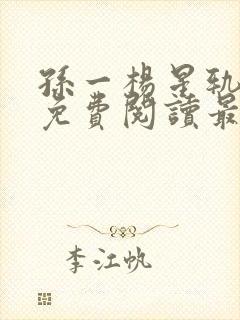 孫一楊是軌
免費閱讀最
李江帆